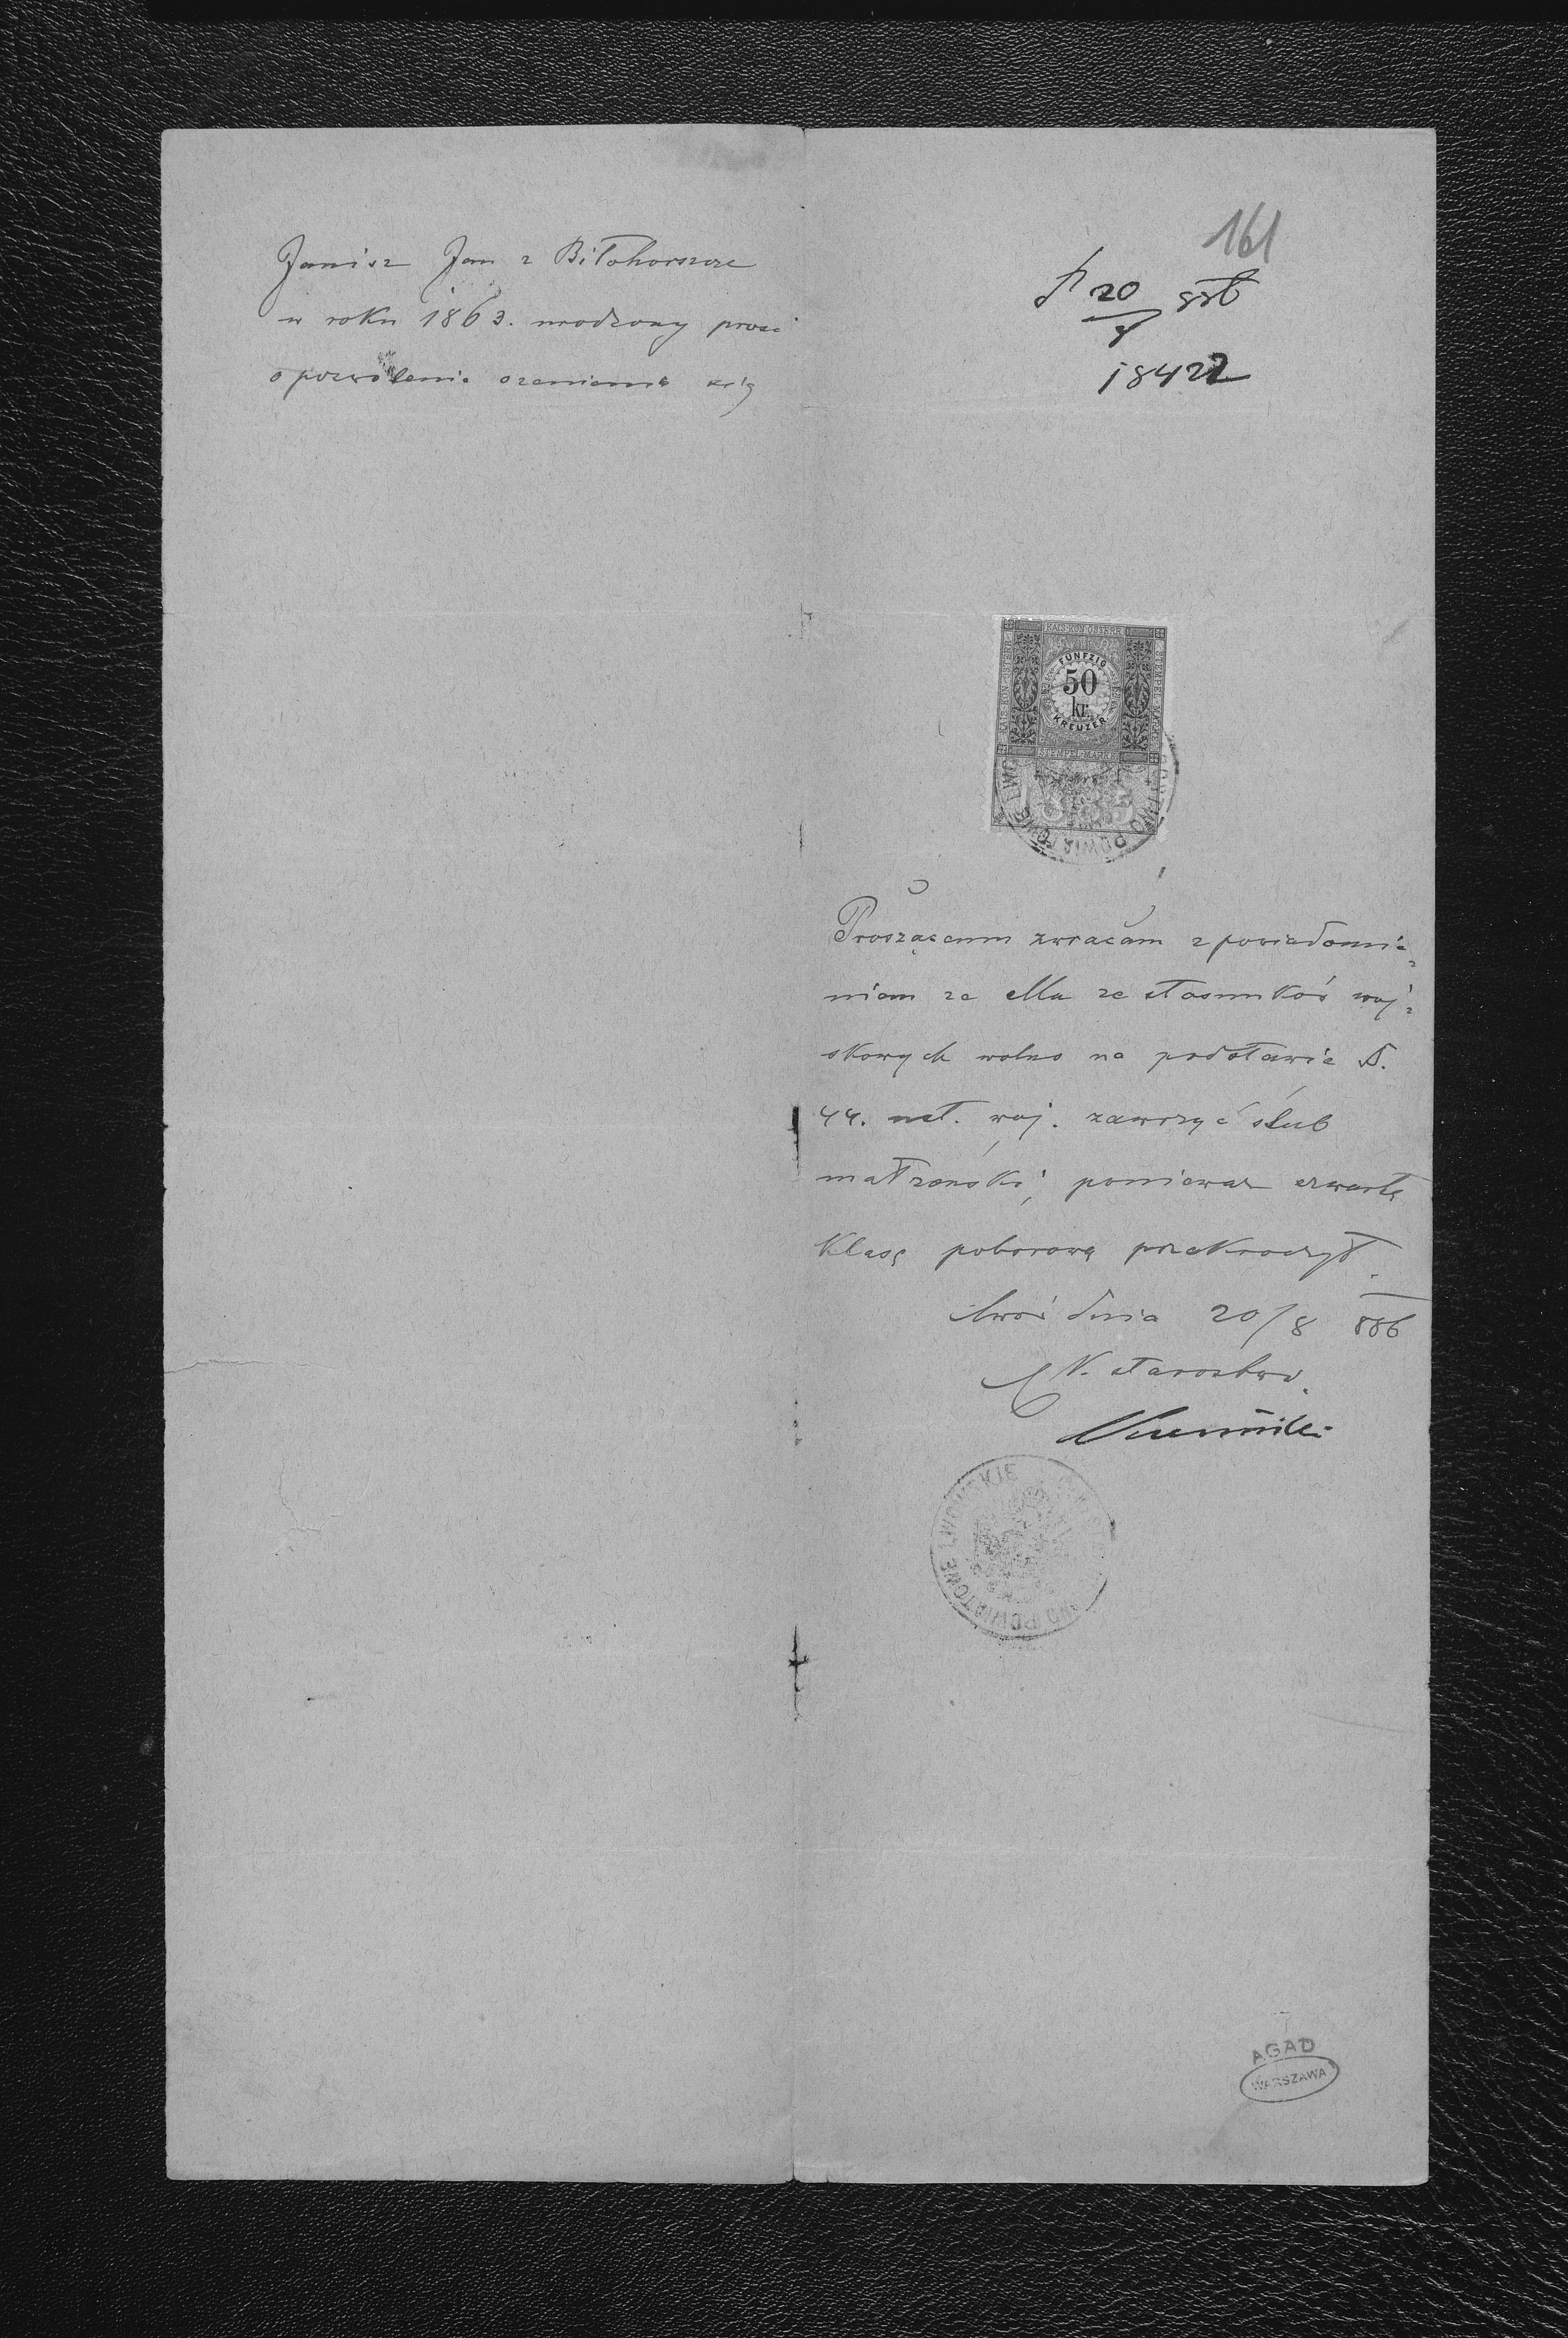 Janisz Jan z Biłohorszcze
w roku 1863. urodzony prosi
o pozwolenie ożenienia się
161
20/8 886
18422
KAIS. KÖN. ÖSTERR.
FÜNFZIG
50
kr.
KREUZER
STEMPEL-MARKE
1885
Proszącemu zwracam z powiadomie-
niem że Mu ze stosunków woj-
skowych wolno na podstawie §.
44. ust. woj. zawrzyć ślub
małżeński, ponieważ czwartę
Klasę poborową przekroczył.
Lwów dnia 20/8 886
C K. starostwo.
POWIATOWE LWOWSKIE
AGAD
WARSZAWA